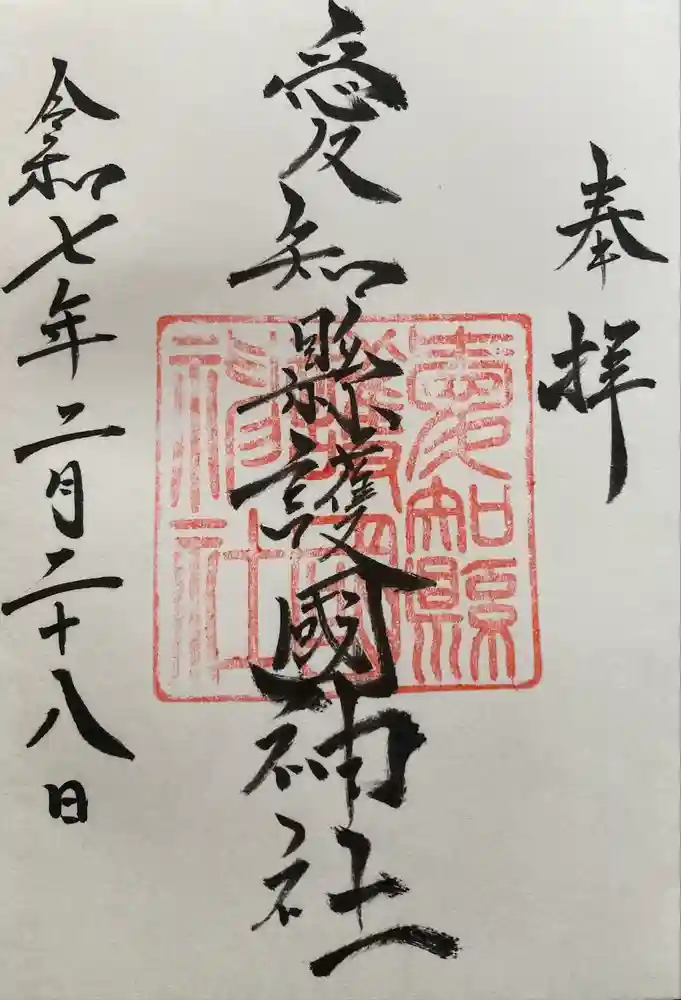 奉拝
愛知縣護國神社
愛知縣護國神社
令和七年二月二十八日